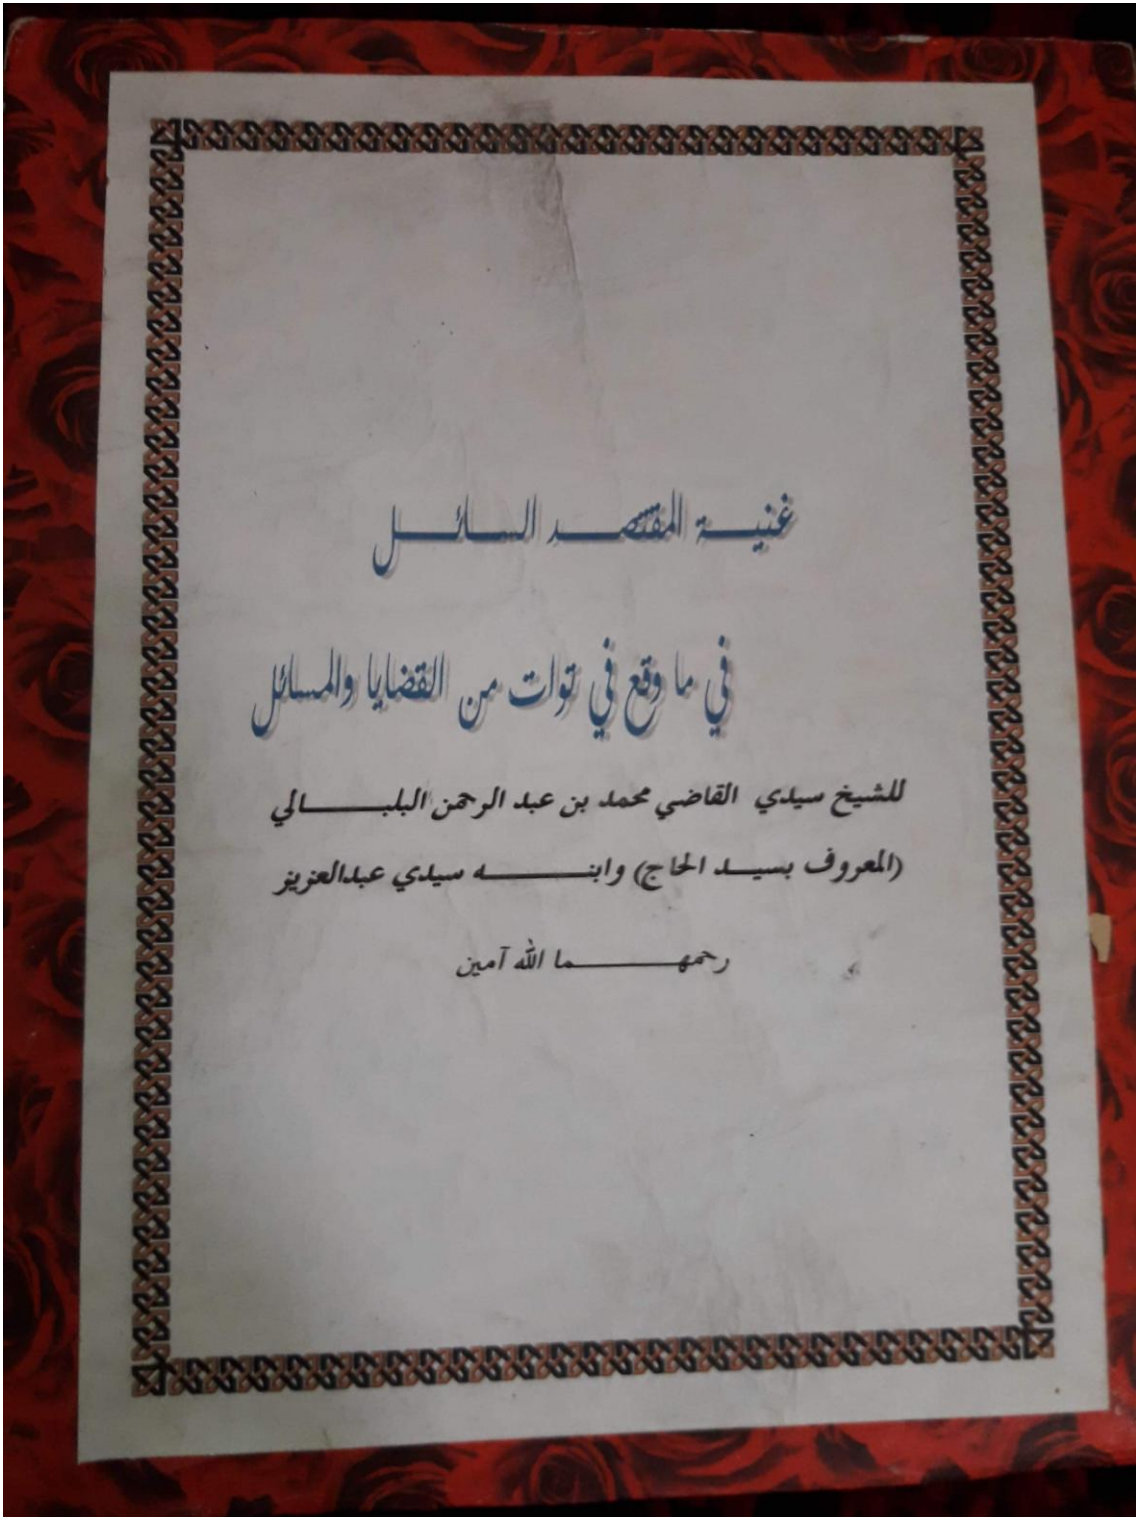 غنية المقتصد السائل
في ما وقع في توات من القضايا والمسائل
للشيخ سيدي القاضي محمد بن عبد الرحمن البلبالي
(المعروف بسيد الحاج) وابنه سيدي عبدالعزيز
رحمهما الله آمين